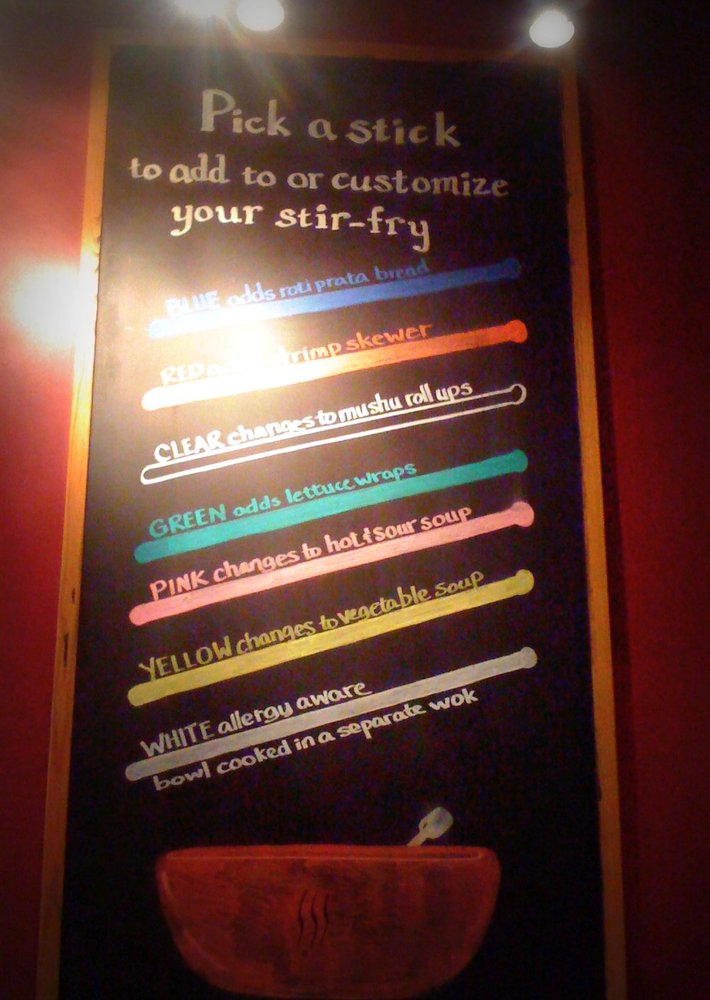 Pick a stick
to add to or customize
your stir-fry
BLUE adds roti prata bread
RED adds shrimp skewer
CLEAR changes to mushu roll ups
GREEN adds lettuce wraps
PINK changes to hot & sour soup
YELLOW changes to vegetable soup
WHITE allergy aware
bowl cooked in a separate wok